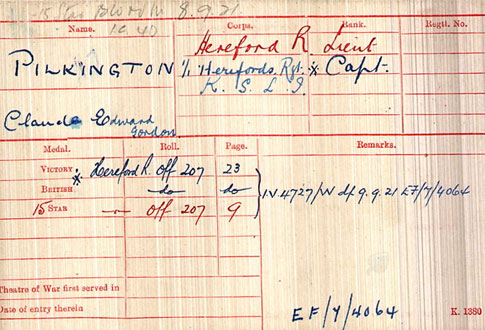 8.9.21.
Name. Corps. Rank. Regtl. No.
Hereford R. Lieut
PILKINGTON 1/1 Herefords. Rgt. * Capt.
K. S. L. I
Claude Edward
Gordon
Medal. Roll. Page. Remarks.
VICTORY * Hereford R. Off 207 23
BRITISH do do
15 STAR Off 207 9
IV 4727/W df 9.9.21 EF/7/4064
Theatre of War first served in
Date of entry therein
EF/7/4064
K. 1380